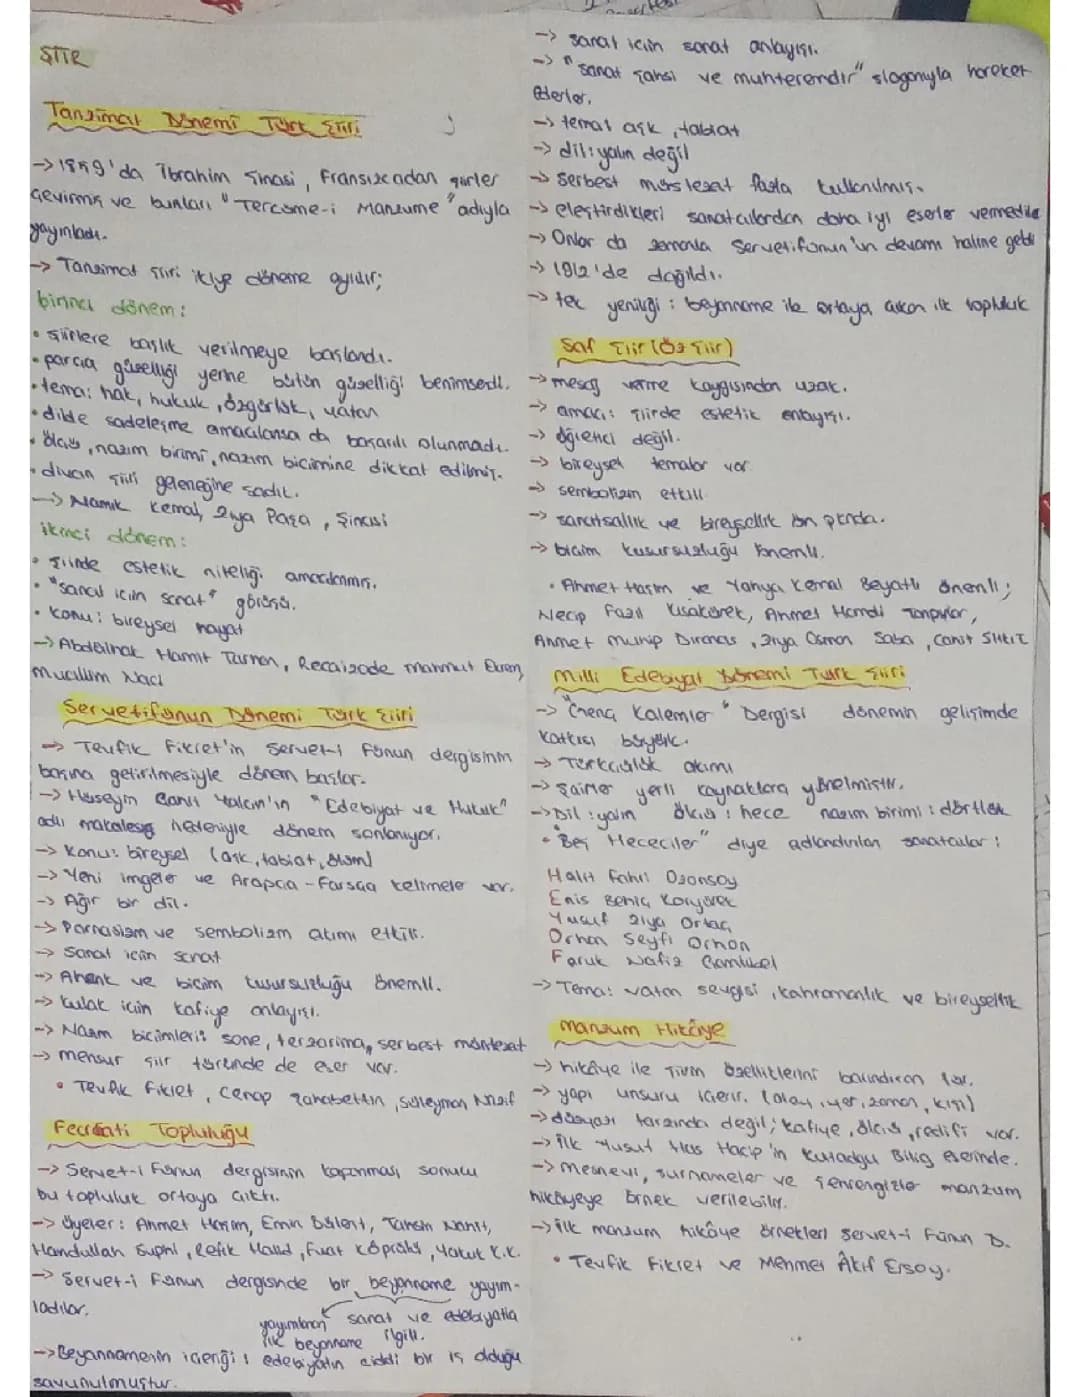 ŞİİR
Tanzimat Dönemi Türk Şiiri
-> 1859'da İbrahim Şinasi, Fransızcadan şiirler
çevirmiş ve bunları "Tercüme-i Manzume" adıyla
yayınladı.
-> Tanzimat şiiri ikiye döneme ayrılır;
birinci dönem:
• şiirlere başlık verilmeye başlandı.
• parça güzelliği yerine bütün güzelliği benimsendi.
• tema: hak, hukuk, özgürlük, vatan
• dilde sadeleşme amaçlansa da başarılı olunmadı.
• ölçü, nazım birimi, nazım biçimine dikkat edilmiş.
• divan şiiri geleneğine sadık.
-> Namık Kemal, Ziya Paşa, Şinasi
ikinci dönem:
• şiirde estetik niteliği amaçlanmış.
• "sanat için sanat" görüşü.
• konu: bireysel hayat
-> Abdülhak Hamit Tarhan, Recaizade Mahmut Ekrem,
Muallim Naci
Servetifünun Dönemi Türk Şiiri
-> Tevfik Fikret'in Servet-i Fünun dergisinin
başına getirilmesiyle dönem başlar.
-> Hüseyin Cahit Yalçın'ın "Edebiyat ve Hukuk"
adlı makalesi nedeniyle dönem sonlanıyor.
-> Konu: bireysel (aşk, tabiat, ölüm)
-> Yeni imgeler ve Arapça - Farsça kelimeler var.
-> Ağır bir dil.
-> Parnasizm ve sembolizm akımı etkili.
-> Sanat için sanat
-> Ahenk ve biçim kusursuzluğu önemli.
-> kulak için kafiye anlayışı.
-> Nazım biçimleri: sone, terzarima, serbest müstezat
-> mensur şiir türünde de eser var.
• Tevfik Fikret, Cenap Şahabettin, Süleyman Nazif
Fecriati Topluluğu
-> Servet-i Fünun dergisinin kapanması sonucu
bu topluluk ortaya çıktı.
-> Üyeler: Ahmet Haşim, Emin Bülent, Tahsin Nahit,
Hamdullah Suphi, Refik Halid, Fuat Köprülü, Yakup K.K.
-> Servet-i Fünun dergisinde bir beyanname yayım-
ladılar.
yayımlanan ilk beyanname
sanat ve edebiyatla ilgili.
-> Beyannamenin içeriği: edebiyatın ciddi bir iş olduğu
savunulmuştur.
-> sanat için sanat anlayışı.
-> "sanat şahsi ve muhteremdir" sloganıyla hareket
ederler.
-> tema: aşk, tabiat
-> dil: yalın değil
-> serbest müstezat fazla kullanılmış.
-> eleştirdikleri sanatçılardan daha iyi eserler vermediler
-> Onlar da zamanla Servetifünun'un devamı haline geldi
-> 1912'de dağıldı.
-> tek yeniliği: beyanname ile ortaya çıkan ilk topluluk
Saf Şiir (Öz Şiir)
-> mesaj verme kaygısından uzak.
-> amacı: şiirde estetik anlayışı.
-> öğretici değil.
-> bireysel temalar var
-> sembolizm etkili
-> sanatsallık ve bireysellik ön planda.
-> biçim kusursuzluğu önemli.
• Ahmet Haşim ve Yahya Kemal Beyatlı önemli;
Necip Fazıl Kısakürek, Ahmet Hamdi Tanpınar,
Ahmet Muhip Dıranas, Ziya Osman Saba, Cahit Sıtkı T.
Milli Edebiyat Dönemi Türk Şiiri
-> "Genç Kalemler" Dergisi dönemin gelişimde
katkısı büyük.
-> Türkçülük akımı
-> Şairler yerli kaynaklara yönelmiştir.
-> Dil: yalın ölçü: hece nazım birimi: dörtlük
• "Beş Hececiler" diye adlandırılan sanatçılar:
Halit Fahri Ozansoy
Enis Behiç Koryürek
Yusuf Ziya Ortaç
Orhan Seyfi Orhon
Faruk Nafiz Çamlıbel
-> Tema: vatan sevgisi, kahramanlık ve bireysellik
Manzum Hikâye
-> hikâye ile şiirin özelliklerini barındıran tür.
-> yapı unsuru içerir. (olay, yer, zaman, kişi)
-> düzyazı tarzında değil; kafiye, ölçü, redifi var.
-> ilk Yusuf Has Hacip'in Kutadgu Bilig eserinde.
-> mesnevi, surnameler ve şehrengizler manzum
hikâyeye örnek verilebilir.
-> ilk manzum hikâye örnekleri Servet-i Fünun D.
• Tevfik Fikret ve Mehmet Âkif Ersoy.